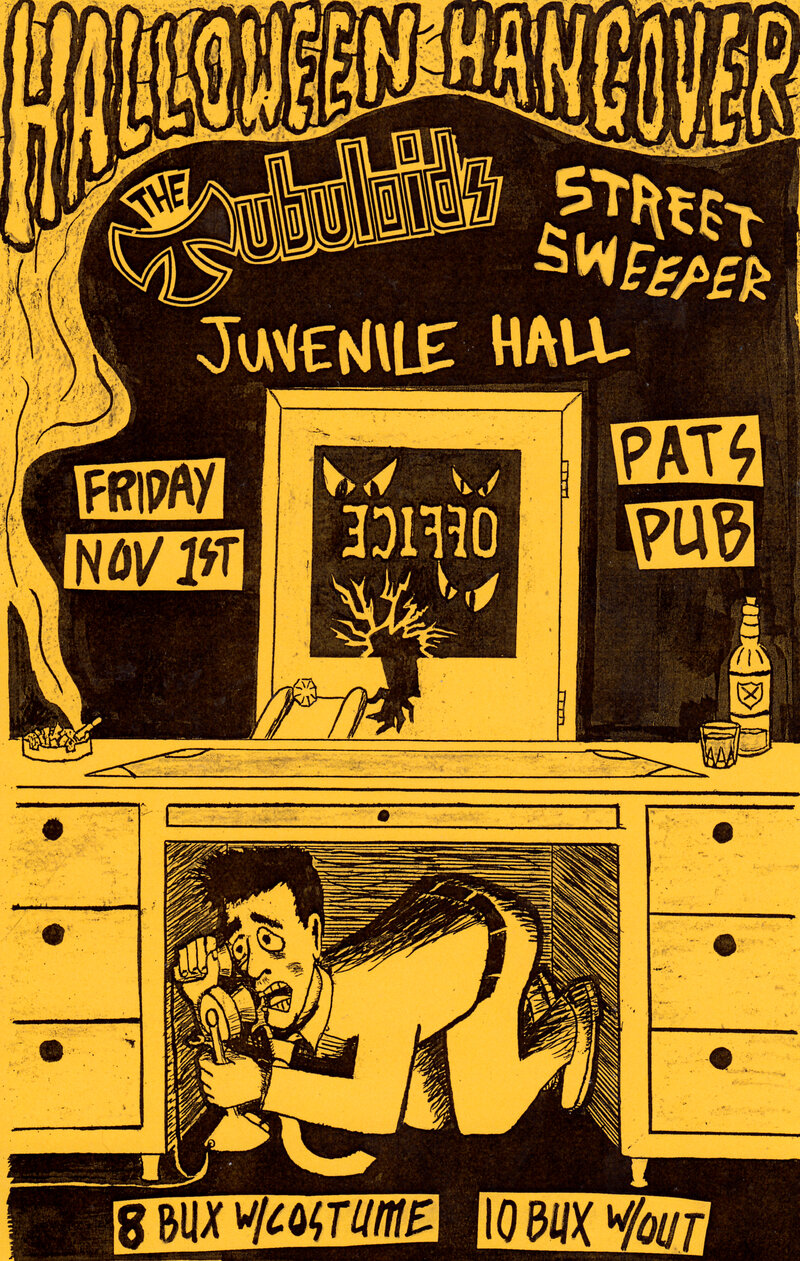 HALLOWEEN HANGOVER
THE Tubuloids
STREET
SWEEPER
JUVENILE HALL
FRIDAY
NOV 1ST
PATS
PUB
OFFICE
8 BUX W/COSTUME
10 BUX W/OUT